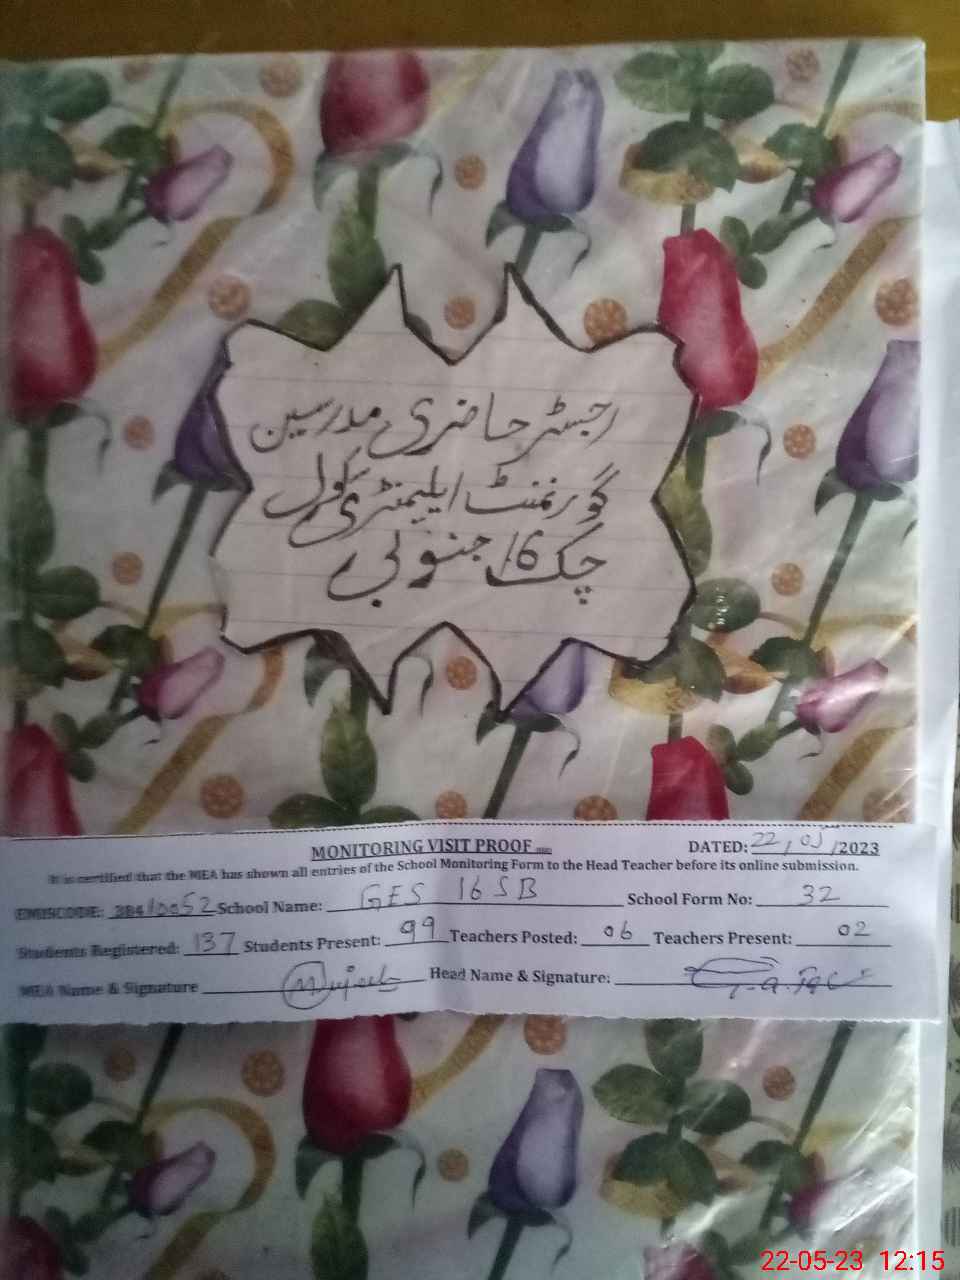 رجسٹر حاضری مدرسین
گورنمنٹ ایلیمنٹری سکول
چک 16 جنوبی
MONITORING VISIT PROOF DATED: 22/05/2023
It is certified that the MEA has shown all entries of the School Monitoring Form to the Head Teacher before its online submission.
EMISCODE: 38410052 School Name: GES 16 SB School Form No: 32
Students Registered: 137 Students Present: 99 Teachers Posted: 06 Teachers Present: 02
MEA Name & Signature Mujeeb Head Name & Signature:
22-05-23 12:15